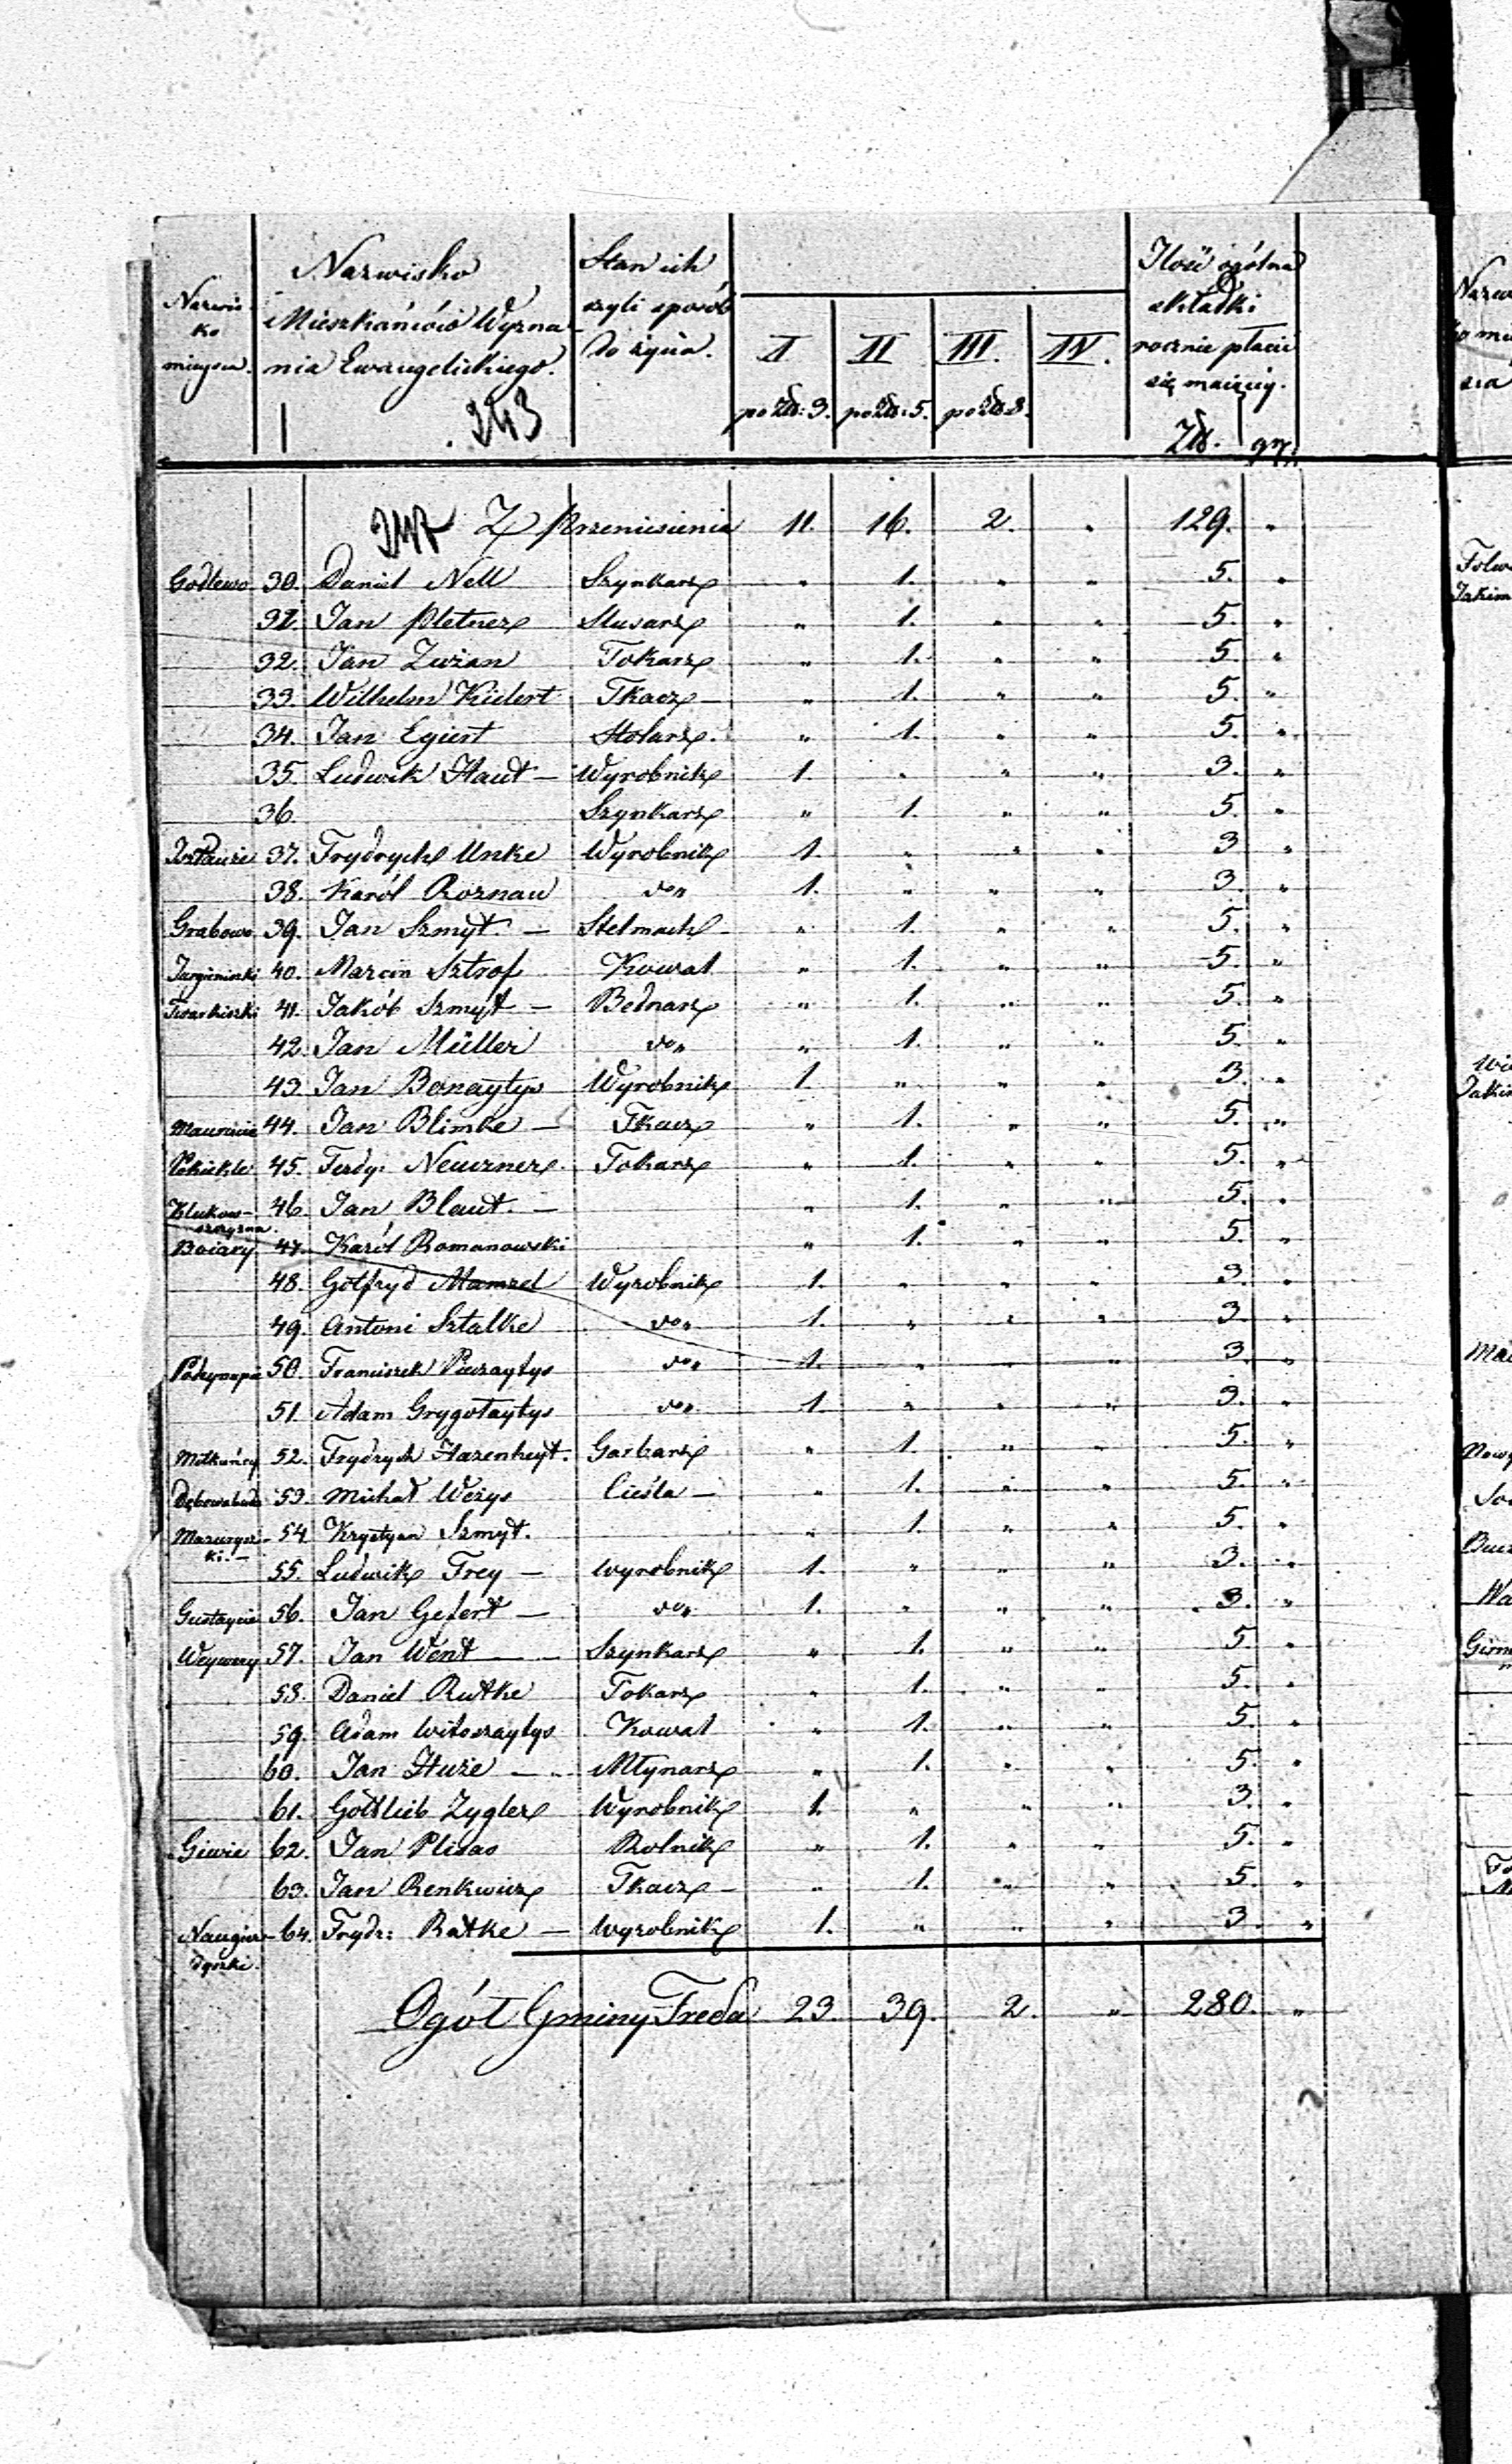 Nazwis-
ko
mieysca.
Nazwisko
Mieszkańców Wyzna-
nia Ewangelickiego.
243
Stan ich
czyli sposób
do życia.
I
po Zł: 3.
II
po Zł: 5.
III.
po Zł: 8.
IV.
Ilość ogólna
składki
rocznie płacić
się maiącéy.
Zł. gr.
Z Przeniesienia 11. 16. 2. " 129. "
Godlewo 30. Daniel Nell Szynkarz " 1. " " 5. "
31. Jan Pletner Slusarz " 1. " " 5. "
32. Jan Zwian Tokarz " 1. " " 5. "
33. Wilhelm Kidert Tkacz – " 1. " " 5. "
34. Jan Egiert Stolarz. " 1. " " 5. "
35. Ludwik Haut – Wyrobnik 1. " " " 3. "
36. Szynkarz " 1. " " 5. "
37. Frydrych Unke Wyrobnik 1. " " " 3 "
38. Karól Roznau do " 1. " " " 3. "
Grabowo 39. Jan Szmyt. – Stelmach – " 1. " " 5. "
40. Marcin Sztrof Kowal " 1. " " 5. "
41. Jakób Szmyt – Bednarz " 1. " " 5. "
42. Jan Müller do " " 1. " " 5. "
43. Jan Bonaytys Wyrobnik 1. " " " 3. "
Maurucie 44. Jan Blimke – Tkacz " 1. " " 5. "
Pokiekle 45. Ferdy: Neuzner Tokarz " 1. " " 5. "
Klukow-
szczyzna.
46. Jan Blaut. – " 1. " " 5. "
Boiary 47. Karól Romanowski " 1. " " 5. "
48. Gotfryd Mamzel Wyrobnik 1. " " " 3. "
49. Antoni Sztalke do " 1. " " " 3. "
50. Franciszek Piezaytys do " 1. " " " 3 "
51. Adam Grygołaytys do " 1. " " " 3. "
Mitkuńcy 52. Frydrych Hazenheyt. Garbarz " 1. " " 5. "
Dębowabuda 53. Michał Weżys Cieśla – " 1. " " 5. "
Mazurysz-
ki. –
54 Krystyan Szmyt. " 1. " " 5. "
55. Ludwik Frey – wyrobnik 1. " " " 3. "
Gustaycie 56. Jan Gefert – do " 1. " " " 3. "
Weywery 57. Jan Went – Szynkarz " 1. " " 5. "
58. Daniel Rutke Tokarz " 1. " " 5. "
59. Adam Witoszaytys Kowal " 1. " " 5. "
60. Jan Huże – Młynarz " 1. " " 5. "
61. Gottlieb Zygler Wyrobnik 1. " " " 3. "
Giwie 62. Jan Plisas Rolnik " 1. " " 5. "
63. Jan Renkwicz Tkacz – " 1. " " 5. "
64. Frydr: Ratke – wyrobnik 1. " " " 3. "
Ogół Gminy Freda 23. 39. 2. " 280. "